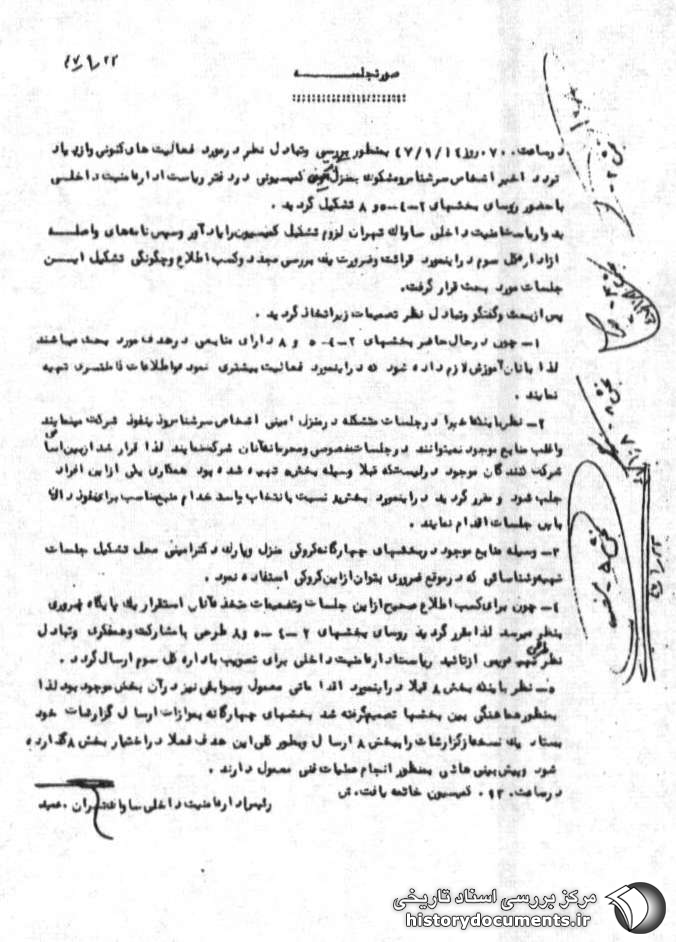 ۴۷/۱/۲۲
صورتجلســـــــــه
در ساعت ۰۷۰۰ روز ۴۷/۱/۱۴ بمنظور بررسی وتبادل نظر درمورد فعالیت های کنونی وازدیاد
تردد اخیر اشخاص سرشناس ومشکوک بمنزل کمیسیونی در دفتر ریاست اداره امنیت داخلی
با حضور روسای بخشهای ۲-۴-۵ و ۸ تشکیل گردید .
بدوا ریاست امنیت داخلی ساواک تهران لزوم تشکیل کمیسیون را یادآور وسپس نامه های واصلـه
ازاداره کل سوم دراینمورد قرائت وضرورت یک بررسی مجدد وکسب اطلاع وچگونگی تشکیل ایـن
جلسات مورد بحث قرار گرفت.
پس ازبحث وگفتگو وتبادل نظر تصمیمات زیر اتخاذ گردید .
۱- چون درحال حاضر بخشهای ۲-۴-۵ و ۸ دارای منابعی درهدف مورد بحث میباشند
لذا بانان آموزش لازم داده شود که دراینمورد فعالیت بیشتری نموده واطلاعات کاملتری تهیه
نمایند .
۲- نظر باینکه در جلسات متشکله درمنزل امینی اشخاص سرشناس وذینفوذ شرکت مینمایند
واغلب منابع موجود نمیتوانند درجلسات خصوصی ومحرمانه آنان شرکت نمایند لذا قرار شد ازبین اسامی
شرکت کنندگان موجود درلیستی که قبلا وسیله بخش ۵ تهیه شده بود همکاری یکی ازاین افراد
جلب شود و مقرر گردید دراینمورد بخش ۵ نسبت بانتخاب واستخدام منبع مناسب برای نفوذ درآن
جلسات اقدام نمایند .
۳- وسیله منابع موجود دربخشهای چهارگانه کروکی منزل وپارک دکترامینی محل تشکیل جلسات
تهیه وشناسائی که درموقع ضروری بتوان ازاین کروکی استفاده نمود .
۴- چون برای کسب اطلاع صحیح ازاین جلسات وتصمیمات متخذه آنان استقرار یک پایگاه ضروری
بنظر میرسد لذا مقرر گردید روسای بخشهای ۲-۴-۵ و ۸ طرحی با مشارکت وهمفکری وتبادل
نظر تهیه وپس ازتائید ریاست اداره امنیت داخلی برای تصویب باداره کل سوم ارسال گردد .
۵- نظر باینکه بخش ۸ قبلا دراینمورد اقداماتی معمول وسوابقی نیز درآن بخش موجود بود لذا
بمنظور هماهنگی بین بخشها تصمیم گرفته شد بخشهای چهارگانه بموازات ارسال گزارشات خود
بستاد یک نسخه ازگزارشات را ببخش ۸ ارسال وبطور کلی این هدف فعلا دراختیار بخش ۸ گذارده
شود وپیش بینی هائی بمنظور انجام عملیات فنی معمول دارند .
در ساعت ۰۹۳۰ کمیسیون خاتمه یافت.ش
رئیس اداره امنیت داخلی ساواک تهران . عمید
بخش ۲
بخش ۴
بخش ۸
بخش ۵
مرکز بررسی اسناد تاریخی
historydocuments.ir